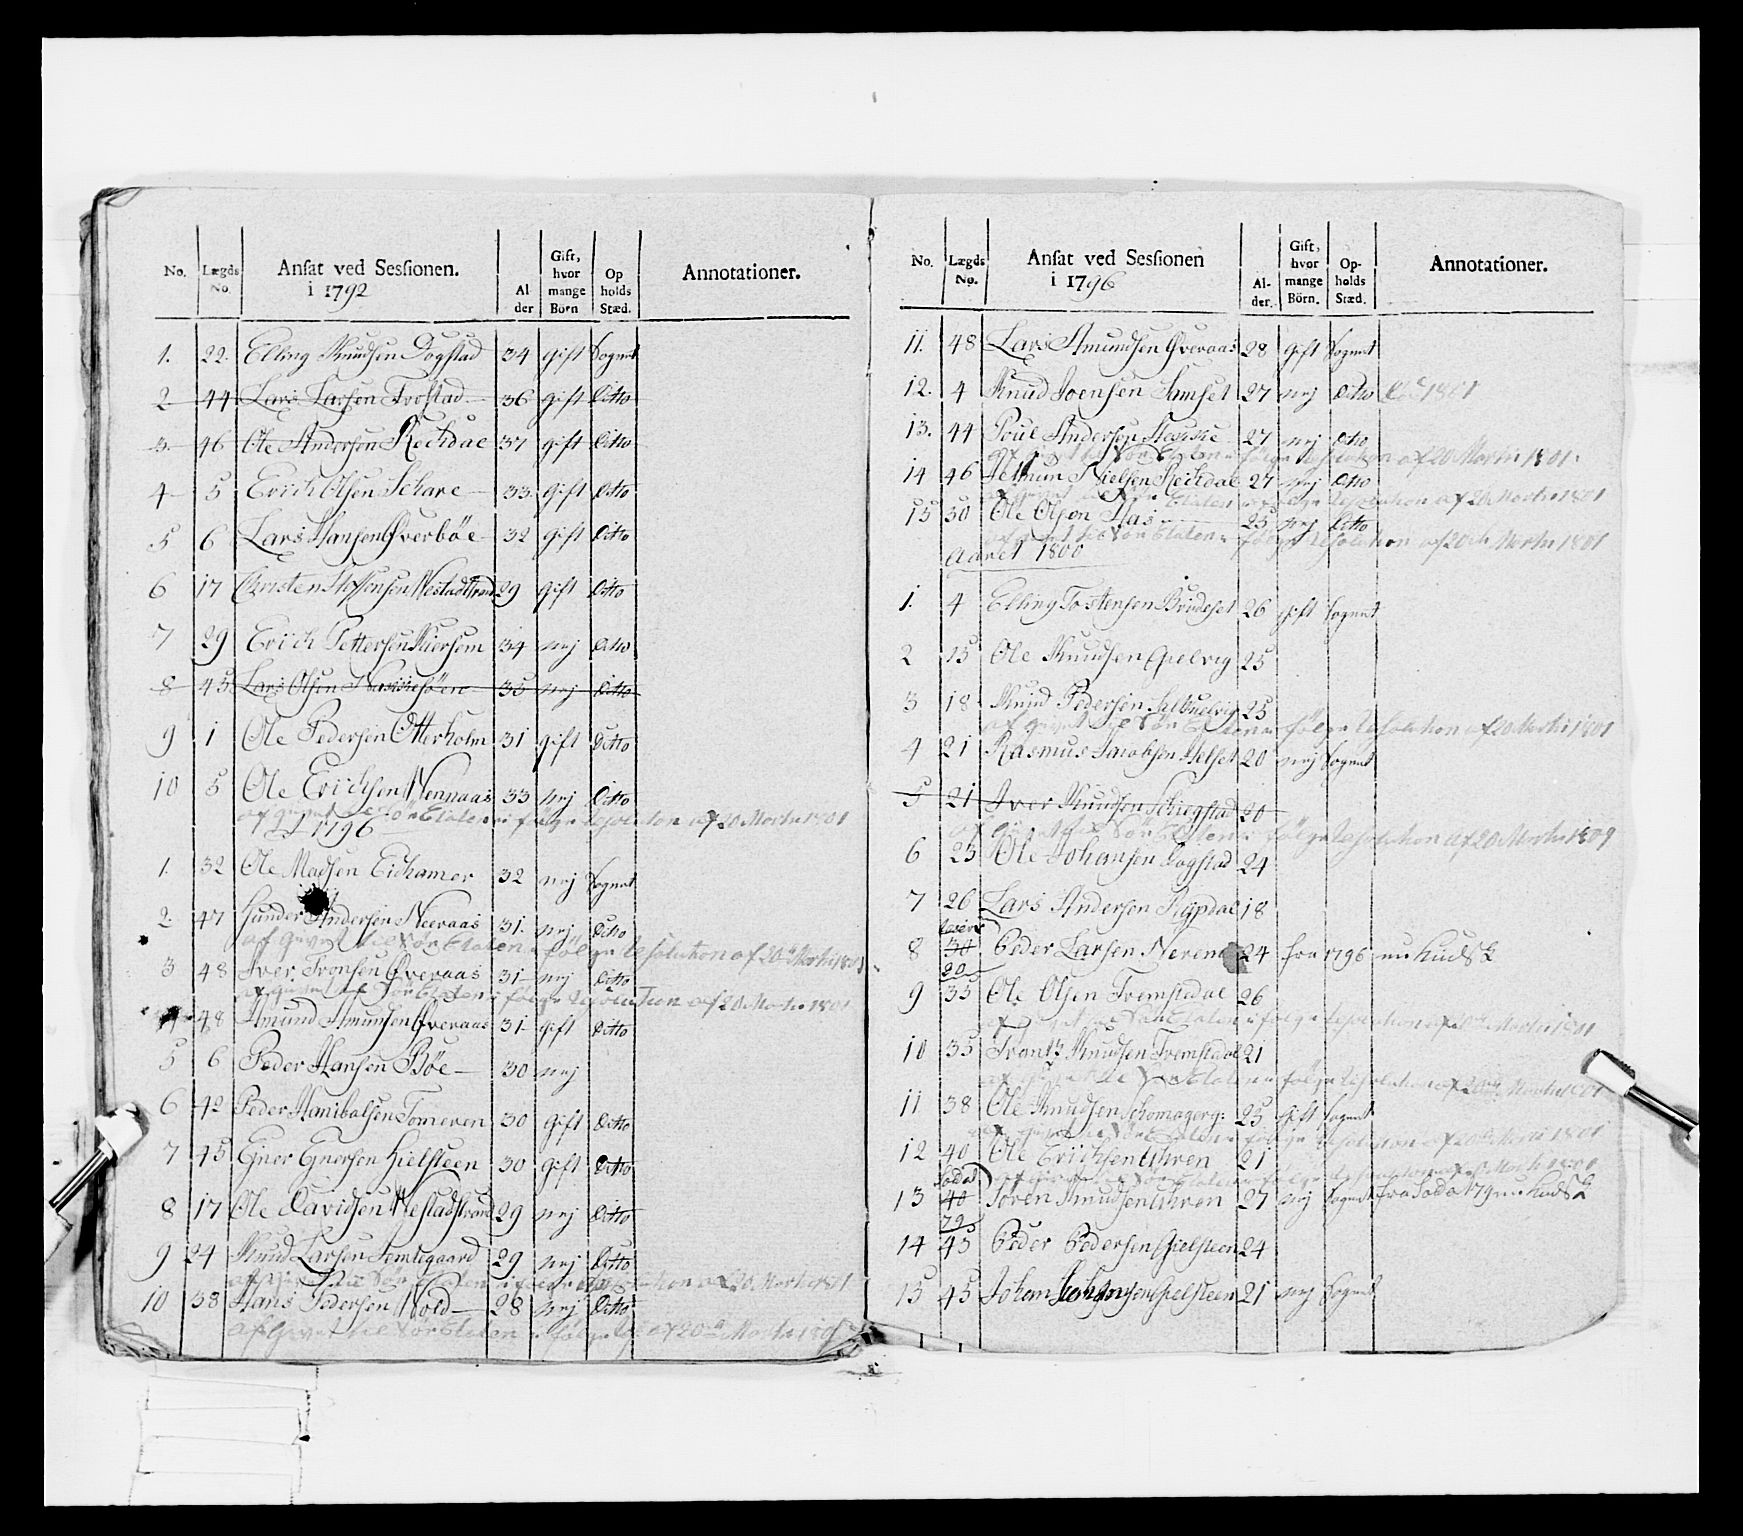 No. Lægds No. Ansat ved Sessionen. i 1792 Alder Gift, hvor mange Börn Op holds Stæd. Annotationer.
1. 22. Elling Knudsen Dogstad 34 gift Sognet
2 44 Lars Larsen Frostad 36 gift Ditto
3. 46 Ole Andersen Reckdal 37 gift Ditto
4 5 Erich Olsen Schare 33. gift Ditto
5 6 Lars Hansen Øverbøe 32 gift Ditto
6 17 Christen Steffensen Nestadstrand 29 gift Ditto
7 29 Erich Pettersen 34 nej Ditto
8 45 Lars Olsen 35 nej Ditto
9 1 Ole Pedersen Otterholm 31 gift Ditto
10 5 Ole Erichsen Nennaas 33 nej Ditto
af givet til Sør Etaten i følge Resolution af 20 Martii 1801
1796
1. 32 Ole Madsen Eichamer 32 nej Sognet
2. 47 Gunder Andersen Neeraas 31. nej Ditto
af givet til Sør Etaten i følge Resolution af 20 Martii 1801
3 48 Iver Tronsen Øveraas 31 nej Ditto
af givet til Sør Etaten i følge Resolution af 20 Martii 1801
48 Amund Amundsen Øveraas 31 gift Ditto
5 6 Peder Hansen Bøe 30 nej
6 42 Peder Hanibalsen Tomeren 30 gift Ditto
7 45 Ejner Ejnersen Hielsteen 30 gift Ditto
8 17 Ole Davidsen Nestadstrand 29 nej Ditto
9 24 Knud Larsen 29 nej Ditto
af givet til Sør Etaten i følge Resolution af 20 Martii 1801
10 38 Hans Pedersen Wold 28 nej Ditto
af givet til Sør Etaten i følge af 20 Martii 1801
No. Lægds No. Ansat ved Sessionen i 1796 Alder. Gift, hvor mange Börn. Opholds Stæd. Annotationer.
11. 48 Lars Amundsen Øveraas 28 gift Sognet
12. 4 Knud Joensen Samset 27 nej Ditto 1801
13. 44 Poul Andersen 27 nej Ditto
af givet til Sør Etaten i følge Resolution af 20 Martii 1801.
14 46 Nielsen Reckdal 27 nej Ditto
af givet til Sør Etaten i følge Resolution af 20 Martii 1801
15 50 Ole Olsen 25 nej Ditto
af givet til Sør Etaten i følge Resolution af 20 Martii 1801
Aaret 1800
1. 4 Elling Tostensen Brudeset 26 gift Sognet
2 15 Ole Knudsen Gielvig 25
3 18 Knud Pedersen 25
af givet til Sør Etaten i følge Resolution af 20 Martii 1801
4 21 Rasmus Jacobsen Helset 20 nej Sognet
5 21 Iver Knudsen Schiegstad 20
af givet til Sør Etaten i følge Resolution af 20 Martii 1801
6 25 Ole Johansen Dogstad 24
7 26 Lars Andersen Rypdal 18
8 30 20 Peder Larsen Nerem 24 fra 1796 nu Kudsk
9 35 Ole Olsen Tremstedal 26
af givet til Sør Etaten i følge Resolution af 20 Martii 1801
10 35 Frantz Knudsen Tremstedal 21
af givet til Sør Etaten i følge Resolution af 20 Martii 1801
11 38 Ole Knudsen 25 gift Sognet
af givet til Sør Etaten i følge Resolution af 20 Martii 1801
12 40 Ole Erichsen Uhren 21
af givet til Sør Etaten i følge Resolution af 20 Martii 1801
13 40 79 Søren Knudsen Uhren 27 nej Sognet fra Kudsk
14 45 Peder Pedersen Gielsteen 24
15 45 Johan Johansen Gielsteen 21 nej Sognet